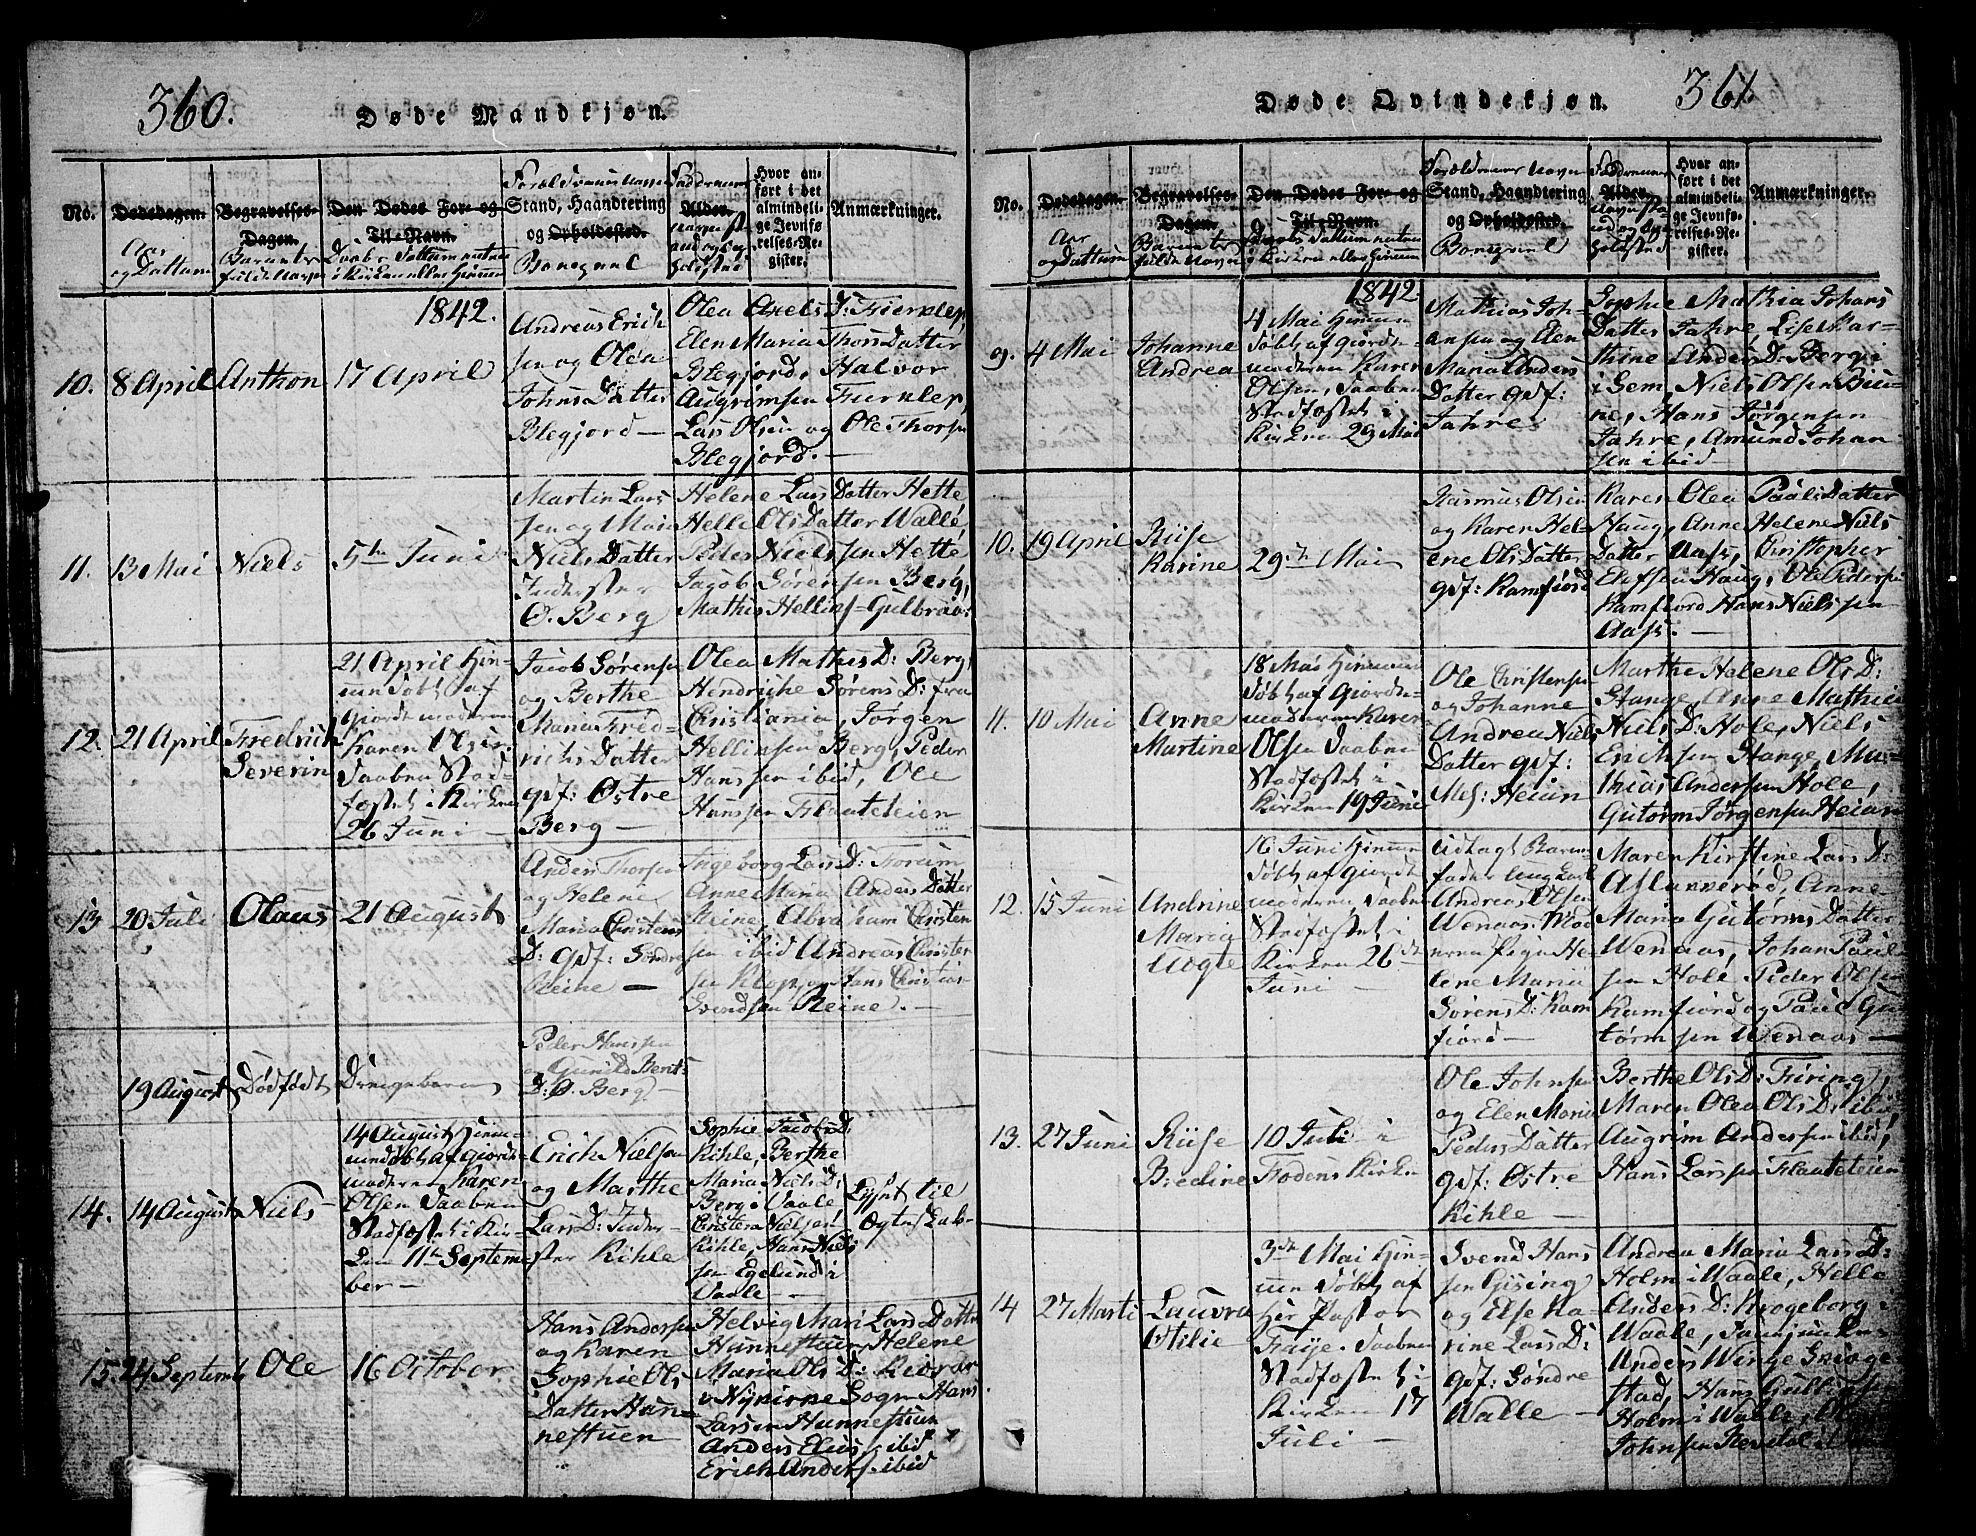 360.
Døde Mandkjøn.
No.
Dødsdagen.
Aar
og Dattum
Begravelses-
Dagen.
Barnets
fulde Navn
Den Dødes For- og
Til-Navn.
Daabs Dattum enten
i Kirken eller Hiemme
Forældrenes Navn
Stand, Haandtering
og Opholdssted.
Boepæl
Faddernes
Alder.
Navn St
and og Op
holdsted
Hvor an-
ført i det
almindeli-
ge Jevnfø-
relses-Re-
gister.
Anmærkninger.
1842.
10.
8 April
Anthon
17 April
Andreas Erich
sen og Olea
Johns Datter
Blegjord —
Olea Axels D: Fierklep,
Elen Maria Thors Datter
Blegjord, Halvor
Augrimsen Fierklep,
Lars Olsen og Ole Thorsen
Blegjord. —
11.
13 Mai
Niels
5te Juni
Martin Lars
sen og Mari
Niels Datter
Inderster
Ø. Berg
Helene Lars Datter Hette
Helle Ols Datter Wallé
Peder Nielssen Hetté
Jacob Sørensen Berg,
Mathis Hellins= Gulbraar
12.
21 April
Fredrich
Severin
21 April Hie-
me døbt af
Giordemoderen
Karen Olsen
Daaben Stad-
fæstet i Kirken
26 Juni —
Jacob Sørensen
og Berthe
Maria Fred-
richs Datter
gdf: Østre
Berg —
Olea Mathis D: Berg,
Hendriche Sørens D: fra
Christiania, Jørgen
Hellinsen Berg, Peder
Hanssen ibid, Ole
Hanssen Flaateteien
13
20 Juli
Olaus
21 August
Anders Thorsen
og Helene
Maria Christens
D: gdf: Søndre
Reine —
Ingeborg Lars D: Forum
Anne Maria Anders Datter
Reine, Abraham Christen
sen ibid Andreas Christen
sen Klopp, Hans Christian
Svendsen Reine. —
19 August
Dødfødt
Drengebarn
Peder Hanssen
og Gunild Bents
D: Ø. Berg —
14.
14 August
Niels
14 August Hiem-
me døbt af Giorde-
moderen Karen
Olsen Daaben
Stadfæstet i Kir-
ken 11te Septem-
ber —
Erich Nielsen
og Marthe
Lars D: Inder-
ster Kihle
Sophie Jacobs D:
Kihle, Berthe
Maria Niels D:
Berg i Vaale
Christen Nielsen
Kihle, Hans Niels
sen Egelund i
Vaale —
Lyst til
Ægteskab
15.
24 Septemb
Ole
16 October
Hans Andersen
og Karen
Sophie Ols
Datter Hun-
nestuen
Helvig Mari Lars Datter
Hunnestuen, Helene
Maria Ols D:
Nykirke Sogn Hans
Larsen Hunnestuen
Anders Elius= ibid
Erich Anders= ibid
Døde Qvindekjøn.
361.
No.
Dødsdagen.
Aar
og Dattum
Begravelses-
Dagen.
Barnets
fulde Navn
Den Dødes For- og
Til-Navn.
Daabs Dattum enten
i Kirken eller Hiemme
Forældrenes Navn
Stand, Haandtering
og Opholdssted.
Boepæl
Faddernes
Alder.
Navn St
and og Op
holdsted
Hvor an-
ført i det
almindeli-
ge Jevnfø-
relses-Re-
gister.
Anmærkninger.
1842
9.
4 Mai
Johanne
Andrea
4 Mai Hiemme
døbt af Giorde-
moderen Karen
Olsen, Daaben
Stadfæstet i
Kirken 29 Mai
Mathias Joh-
ansen og Elen
Maria Anders
Datter gdf:
Jahre
Sophie Mathia Johans
Datter Jahre Lise Mar-
thine Anders D: Berg i
i Sem Niels Olsen Biu-
ne, Hans Jørgensen
Jahre, Amund Johan-
sen ibid —
10.
19 April
Riise
Karine
29de Mai
Rasmus Olsen
og Karen Hel-
ene Ols Datter
gdf: Ramfiord
Karen Olea Paals Datter
Haug, Anne Helene Niels
Datter Aas, Christopher
Elefsen Haug, Ole Pedersen
Ramfiord Hans Nielssen
Aas. —
11.
10 Mai
Anne
Martine
18 Mai Hiemme
døbt af Giorde-
moderen Karen
Olsen Daaben
Stadfæstet i
Kirken 19 Juni
Ole Christensen
og Johanne
Andrea Niels
Datter gdf:
Mel: Heian
Marthe Helene Ols D:
Stange, Anne Mathia
Niels D: Hole, Niels
Erichsen Stange, Ma-
thias Andersen Hole,
Gutorm Jørgensen Heian
12.
15 Juni
Andrine
Maria
Aagte
16 Juni Hiemme
døbt af Giorde
moderen Daaben
Stadfæstet i
Kirken 26de
Juni —
Udlagt Barne-
fader Ung Karl
Andreas Olsen
Wenaas. Mod
eren Pige He-
lene Maria
Sørens D: Ram
fiord —
Maren Kirstine Lars D:
Aslaxerød, Anne
Maria Gutorms Datter
Wenaas, Johan Paul
sen Hole Peder Olsen
Ramfiord og Paul Gu-
tormsen Wenaas —
13.
27 Juni
Riise
Bredine
10 Juli i
Fodens Kirken
Ole Johnsen
og Elen Maria
Peders Datter
gdf: Østre
Kihle —
Berthe Ols D: Firing,
Maren Olea Ols D: ibid,
Augrim Andersen ibid,
Hans Larssen Flaateteien
14
27 Marti
Lauvra
Otilie
3de Mai Hie-
me døbt af
Her Pastor
Fraye. Daaben
Stadfæstet i
Kirken 17
Juli —
Svend Hans
sen Gising
og Else Ka-
rine Lars D:
gdf: Søndre
Walle —
Andrea Maria Lars D:
Holm i Waale, Helle
Anders D: Krogeborg i
Waale,
Anders Winge
stad, Hans Gullichsen
Holm i Waale,
Johnsen Revetal i